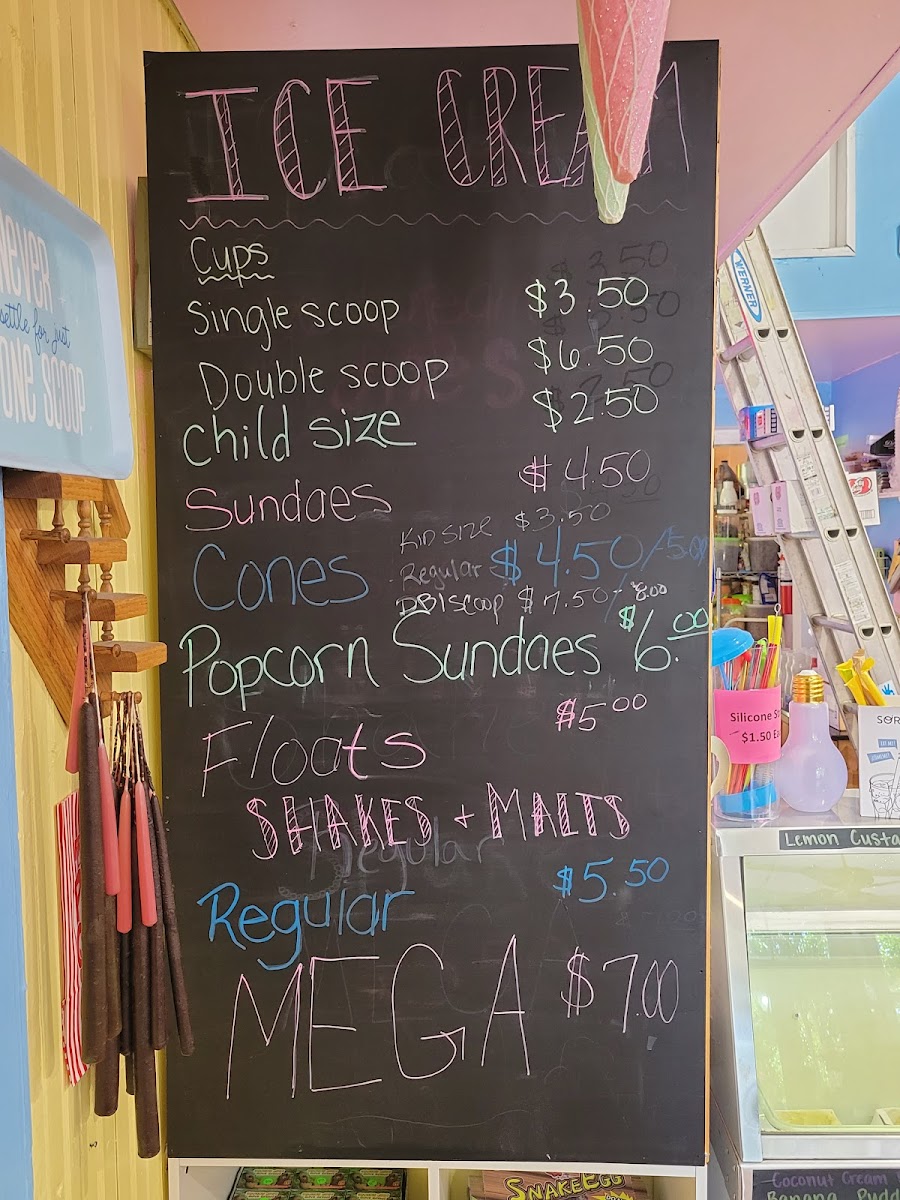 ICE CREAM
Cups
Single scoop $3.50
Double scoop $6.50
Child size $2.50
Sundaes $4.50
Cones
Kid size $3.50
Regular $4.50/5.00
DBl scoop $7.50/8.00
Popcorn Sundaes $6.00
Floats $5.00
SHAKES + MALTS
Regular
Regular $5.50
MEGA $7.00
Never
settle for just
one scoop
WERNER
Silicone
$1.50
Lemon
Coconut Cream
SNAKE EGG